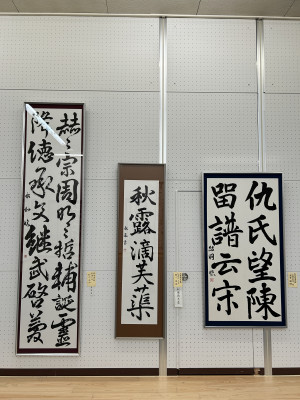 赫々宗周明々哲輔誕靈
降德承文継武啓
秋露滴芙蕖
仇氏望陳
留譜云宋